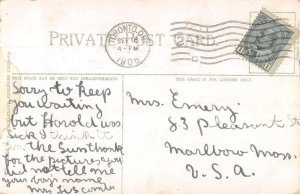 TORONTO, ONT.
SEP 18
4-PM
1906
C
PRIVATE POST CARD
THIS SPACE MAY BE USED FOR CORRESPONDENCE
THIS SPACE IS FOR ADDRESS ONLY.
Sorry to keep
you waiting
but Harold was
sick I think it
was the Sun thank
for the pictures you
did not tell me
your boys name
Mrs
Mrs. Emery.
83 Pleasant St
Marlboro Mass.
U.S.A.